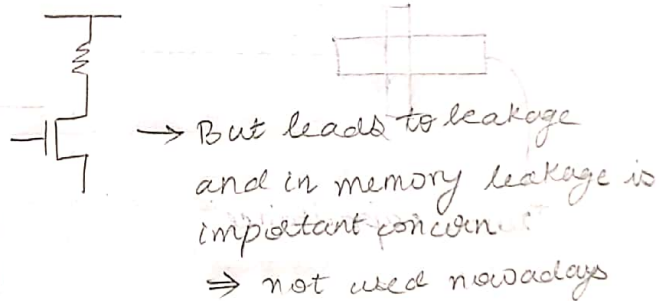 → But leads to leakage
and in memory leakage is
important concern.
⇒ not used nowadays